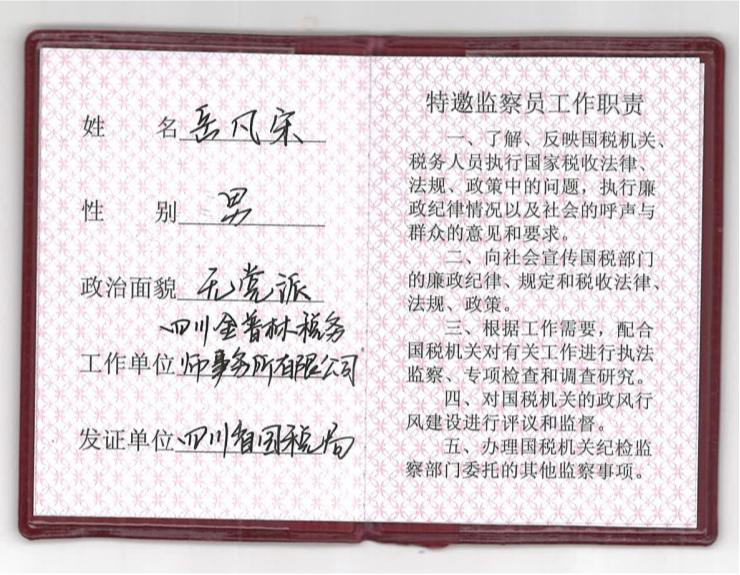 姓 名 岳凡宋
性 别 男
政治面貌 无党派
四川金普林税务
工作单位 师事务所有限公司
发证单位 四川省国税局
特邀监察员工作职责
一、了解、反映国税机关、
税务人员执行国家税收法律、
法规、政策中的问题，执行廉
政纪律情况以及社会的呼声与
群众的意见和要求。
二、向社会宣传国税部门
的廉政纪律、规定和税收法律、
法规、政策。
三、根据工作需要，配合
国税机关对有关工作进行执法
监察、专项检查和调查研究。
四、对国税机关的政风行
风建设进行评议和监督。
五、办理国税机关纪检监
察部门委托的其他监察事项。